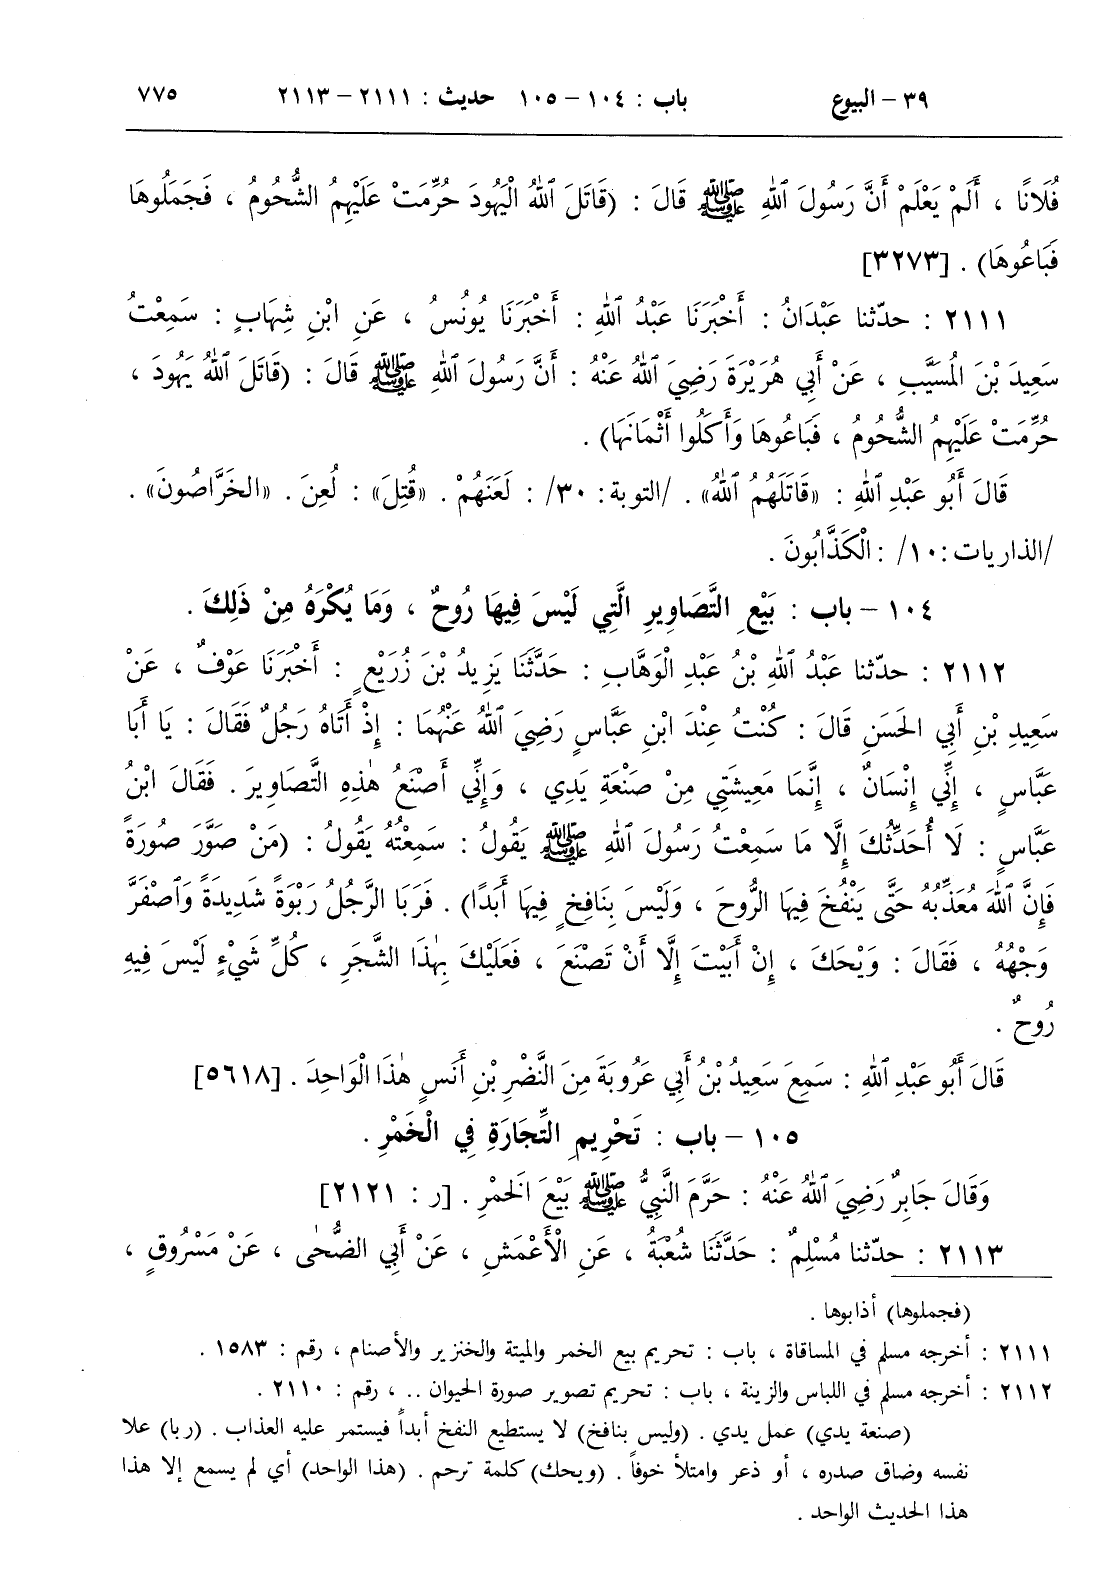 ٣٩ – البيوع باب : ١٠٤ – ١٠٥ حديث : ٢١١١ – ٢١١٣ ٧٧٥
فُلَانًا ، أَلَمْ يَعْلَمْ أَنَّ رَسُولَ ٱللهِ ﷺ قَالَ : (قَاتَلَ ٱللهُ الْيَهُودَ حُرِّمَتْ عَلَيْهِمُ الشُّحُومُ ، فَجَمَلُوهَا
فَبَاعُوهَا) . [٣٢٧٣]
٢١١١ : حدّثنا عَبْدَانُ : أَخْبَرَنَا عَبْدُ ٱللهِ : أَخْبَرَنَا يُونُسُ ، عَنِ ابْنِ شِهَابٍ : سَمِعْتُ
سَعِيدَ بْنَ المُسَيَّبِ ، عَنْ أَبِي هُرَيْرَةَ رَضِيَ ٱللهُ عَنْهُ : أَنَّ رَسُولَ ٱللهِ ﷺ قَالَ : (قَاتَلَ ٱللهُ يَهُودَ ،
حُرِّمَتْ عَلَيْهِمُ الشُّحُومُ ، فَبَاعُوهَا وَأَكَلُوا أَثْمَانَهَا) .
قَالَ أَبُو عَبْدِ ٱللهِ : «قَاتَلَهُمُ ٱللهُ» . /التوبة: ٣٠/ : لَعَنَهُمْ . «قُتِلَ» : لُعِنَ . «الخَرَّاصُونَ» .
/الذاريات:١٠/ : الْكَذَّابُونَ .
١٠٤ – باب : بَيْعِ التَّصَاوِيرِ الَّتِي لَيْسَ فِيهَا رُوحٌ ، وَمَا يُكْرَهُ مِنْ ذَلِكَ .
٢١١٢ : حدّثنا عَبْدُ ٱللهِ بْنُ عَبْدِ الْوَهَّابِ : حَدَّثَنَا يَزِيدُ بْنَ زُرَيْعٍ : أَخْبَرَنَا عَوْفٌ ، عَنْ
سَعِيدِ بْنِ أَبِي الحَسَنِ قَالَ : كُنْتُ عِنْدَ ابْنِ عَبَّاسٍ رَضِيَ ٱللهُ عَنْهُمَا : إِذْ أَتَاهُ رَجُلٌ فَقَالَ : يَا أَبَا
عَبَّاسٍ ، إِنِّي إِنْسَانٌ ، إِنَّمَا مَعِيشَتِي مِنْ صَنْعَةِ يَدِي ، وَإِنِّي أَصْنَعُ هٰذِهِ التَّصَاوِيرَ . فَقَالَ ابْنُ
عَبَّاسٍ : لَا أُحَدِّثُكَ إِلَّا مَا سَمِعْتُ رَسُولَ ٱللهِ ﷺ يَقُولُ : سَمِعْتُهُ يَقُولُ : (مَنْ صَوَّرَ صُورَةً
فَإِنَّ ٱللهَ مُعَذِّبُهُ حَتَّى يَنْفُخَ فِيهَا الرُّوحَ ، وَلَيْسَ بِنَافِخٍ فِيهَا أَبَدًا) . فَرَبَا الرَّجُلُ رَبْوَةً شَدِيدَةً وَٱصْفَرَّ
وَجْهُهُ ، فَقَالَ : وَيْحَكَ ، إِنْ أَبَيْتَ إِلَّا أَنْ تَصْنَعَ ، فَعَلَيْكَ بِهٰذَا الشَّجَرِ ، كُلِّ شَيْءٍ لَيْسَ فِيهِ
رُوحٌ .
قَالَ أَبُو عَبْدِ ٱللهِ : سَمِعَ سَعِيدُ بْنُ أَبِي عَرُوبَةَ مِنَ النَّضْرِ بْنِ أَنَسٍ هٰذَا الْوَاحِدَ . [٥٦١٨]
١٠٥ – باب : تَحْرِيمِ التِّجَارَةِ فِي الْخَمْرِ .
وَقَالَ جَابِرٌ رَضِيَ ٱللهُ عَنْهُ : حَرَّمَ النَّبِيُّ ﷺ بَيْعَ الخَمْرِ . [ر : ٢١٢١]
٢١١٣ : حدّثنا مُسْلِمٌ : حَدَّثَنَا شُعْبَةُ ، عَنِ الْأَعْمَشِ ، عَنْ أَبِي الضُّحٰى ، عَنْ مَسْرُوقٍ ،
(فجملوها) أذابوها .
٢١١١ : أخرجه مسلم في المساقاة ، باب : تحريم بيع الخمر والميتة والخنزير والأصنام ، رقم : ١٥٨٣ .
٢١١٢ : أخرجه مسلم في اللباس والزينة ، باب : تحريم تصوير صورة الحيوان .. ، رقم : ٢١١٠ .
(صنعة يدي) عمل يدي . (وليس بنافخ) لا يستطيع النفخ أبداً فيستمر عليه العذاب . (ربا) علا
نفسه وضاق صدره ، أو ذعر وامتلأ خوفاً . (ويحك) كلمة ترحم . (هذا الواحد) أي لم يسمع إلا هذا
هذا الحديث الواحد .